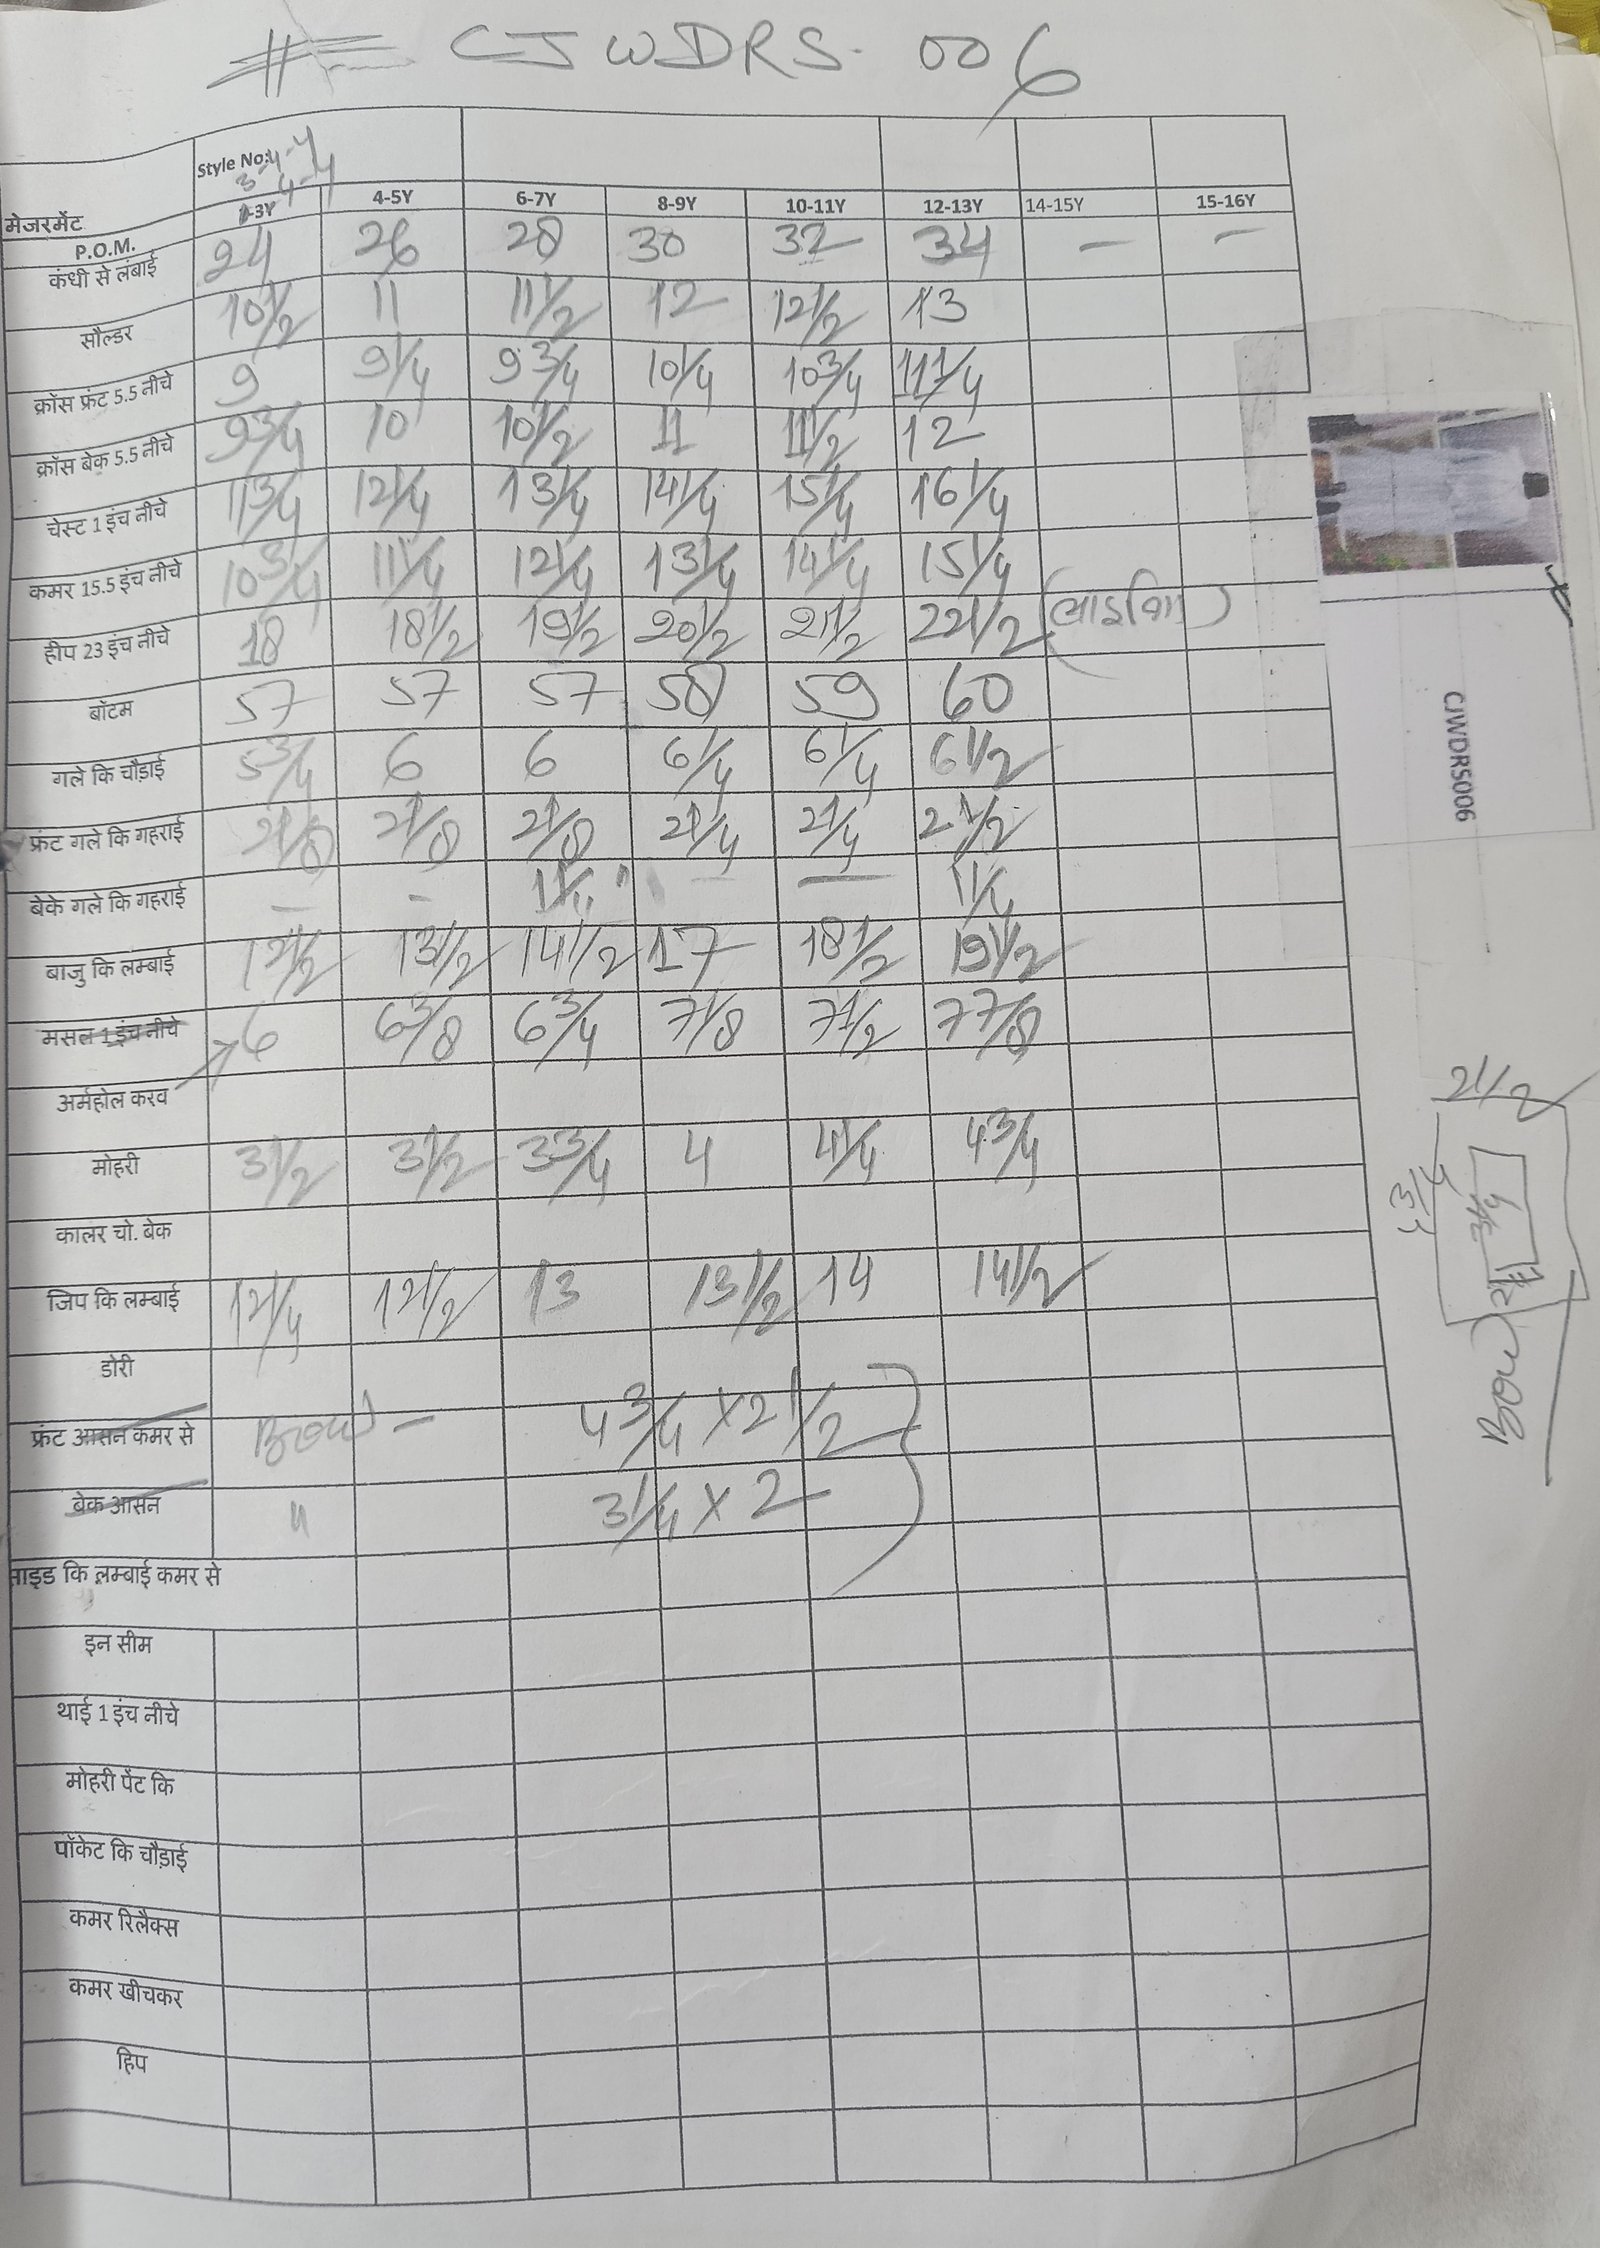 CJWDRS-006
Style No:
3-4-Y
मेजरमेंट 3Y 4-5Y 6-7Y 8-9Y 10-11Y 12-13Y 14-15Y 15-16Y
P.O.M.
कंधी से लंबाई 24 26 28 30 32 34 - -
सौल्डर 10 1/2 11 11 1/2 12 12 1/2 13
क्रॉस फ्रंट 5.5 नीचे 9 9 1/4 9 3/4 10 1/4 10 3/4 11 1/4
क्रॉस बेक 5.5 नीचे 9 3/4 10 10 1/2 11 11 1/2 12
चेस्ट 1 इंच नीचे 11 3/4 12 1/4 13 1/4 14 1/4 15 1/4 16 1/4
कमर 15.5 इंच नीचे 10 3/4 11 1/4 12 1/4 13 1/4 14 1/4 15 1/4
हीप 23 इंच नीचे 18 18 1/2 19 1/2 20 1/2 21 1/2 22 1/2
बॉटम 57 57 57 58 59 60
गले कि चौड़ाई 5 3/4 6 6 6 1/4 6 1/4 6 1/2
फ्रंट गले कि गहराई 2 1/8 2 1/8 2 1/8 2 1/4 2 1/4 2 1/2
बेके गले कि गहराई - - - -
बाजु कि लम्बाई 12 1/2 13 1/2 14 1/2 17 18 1/2 19 1/2
मसल 1 इंच नीचे 6 6 3/8 6 3/4 7 1/8 7 1/2 7 7/8
अर्महोल करव
मोहरी 3 1/2 3 1/2 3 3/4 4 4 1/4 4 3/4
कालर चो. बेक
जिप कि लम्बाई 12 1/4 12 1/2 13 13 1/2 14 14 1/2
डोरी
फ्रंट आसन कमर से Bow - 4 3/4 X 2 1/2
बेक आसन " 3 1/4 X 2
साइड कि लम्बाई कमर से
इन सीम
थाई 1 इंच नीचे
मोहरी पेंट कि
पॉकेट कि चौड़ाई
कमर रिलैक्स
कमर खीचकर
हिप
CJWDRS006
2 1/2
4 3/4
3 1/4
Bow